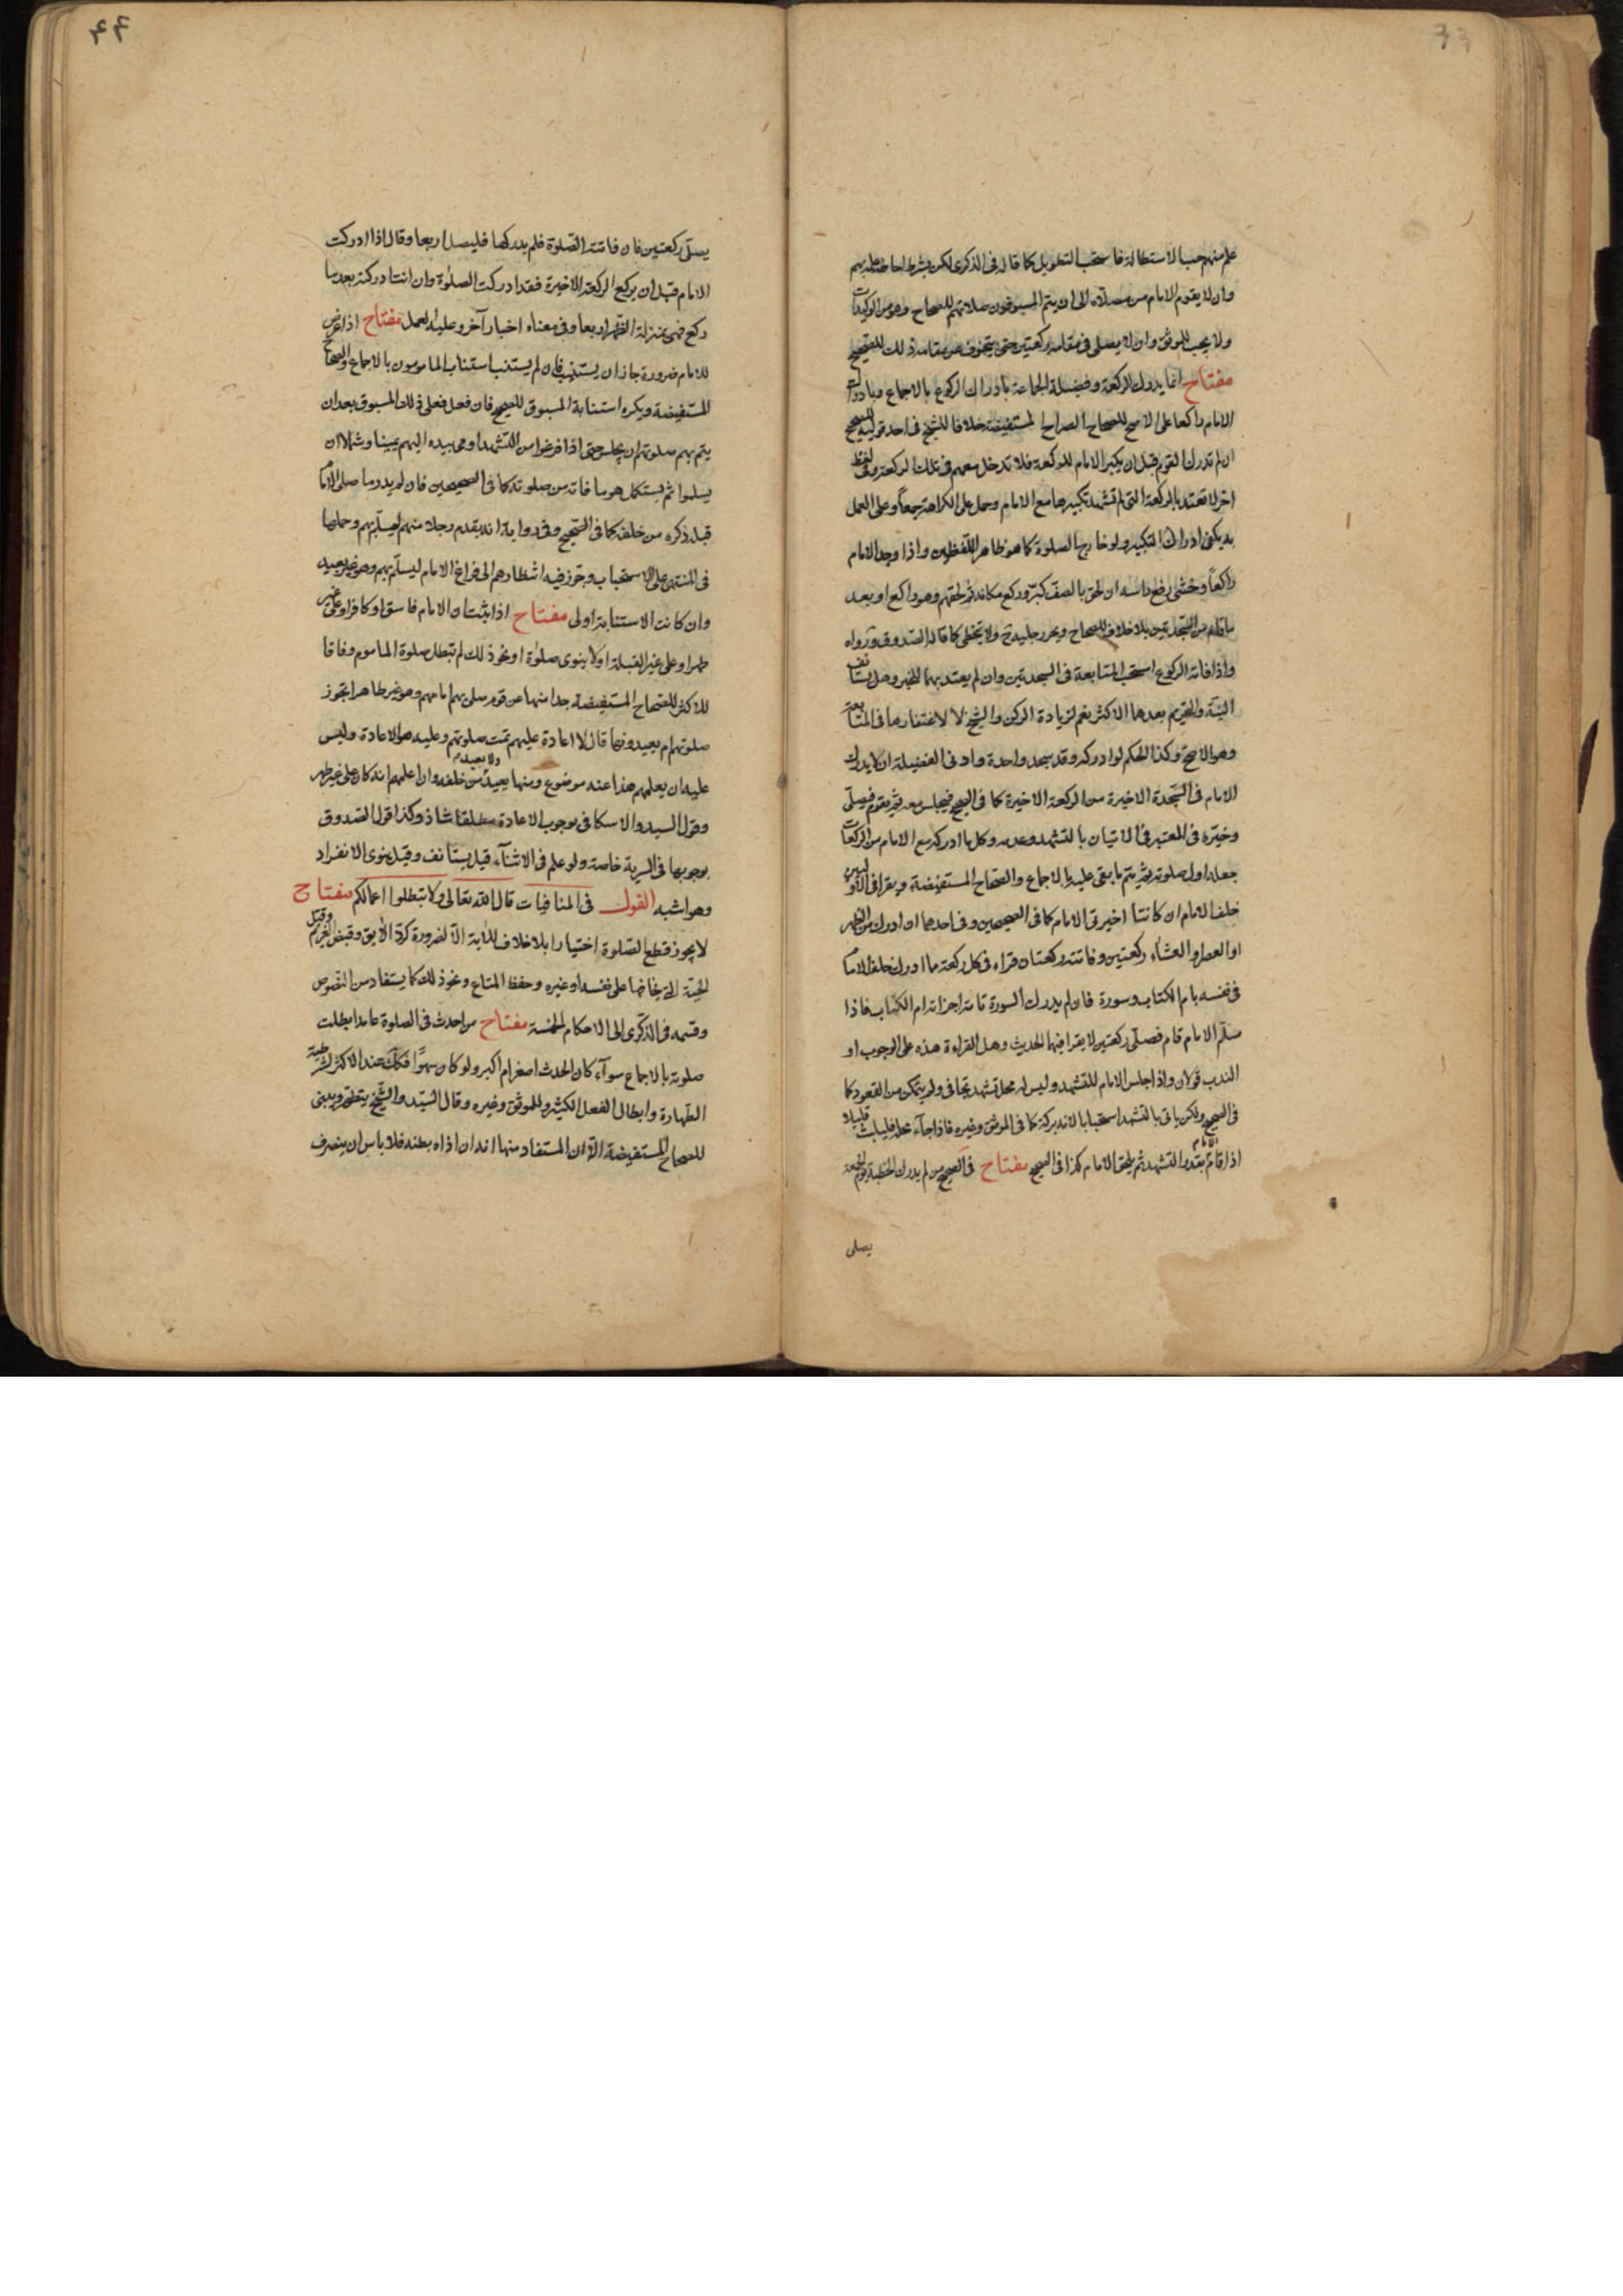 علم منهم حب الاستطالة فاستحب التطويل كما قاله فى الذكرى لكن بشرط احاطة علمه بهم
وان لا يقوم الامام من مصلاه الى ان يتم المسبوقون صلاتهم للصحاح وهو من الوكيدات
ولا يجب للموثق وان لا يصلى فى مقامه ركعتين حتى ينحرف عن مقامه ذلك للصحيح
مفتاح انما يدرك الركعة وفضيلة الجماعة بادراك الركوع بالاجماع وبادراك
الامام راكعا على الاصح للصحاح الصراح المستفيضة خلافا للشيخ فى احد قوليه للصحيح
ان لم تدرك القوم قبل ان يكبر الامام للركعة فلا تدخل معهم فى تلك الركعة وفى لفظ
اخر لا تعتد بالركعة التى لم تشهد تكبيرها مع الامام وحمل على الكراهة جمعاً وعلى العمل
به يكفى ادراك التكبير ولو خارج الصلوة كما هو ظاهر اللفظين واذا وجد الامام
راكعاً وخشى رفع راسه ان لحق بالصف كبّر وركع مكانه ثم لحقهم وهو راكع او بعد
ما قام من السجدتين بلا خلاف للصحاح ويجرر جليه ولا يتخطى كما قاله الصدوق ورواه
واذا فاته الركوع استحب المتابعة فى السجدتين وان لم يعتد بهما للخبر وهل يستانف
النية والتحريم بعدهما الاكثر نعم لزيادة الركن والشيخ لا لاغتفارها فى المتابعة
وهو الاصح وكذا الحكم لو ادركه وقد سجد واحدة وادنى الفضيلة ان يدرك
الامام فى السجدة الاخيرة من الركعة الاخيرة كما فى الصحيح فيجلس معه ثم يقوم فيصلى
وخيّره فى المعتبر فى الاتيان بالتشهد وعدمه وكل ما ادركه مع الامام من الركعات
جعله اول صلوته ثم يتم ما بقى عليه بالاجماع والصحاح المستفيضة ويقرا فى الاوليين
خلف الامام ان كانتا اخيرتى الامام كما فى الصحيحين وفى احدهما ان ادرك من الظهر
او العصر او العشاء ركعتين وفاتته ركعتان قراء فى كل ركعة مما ادرك خلف الامام
فى نفسه بام الكتاب وسورة فان لم يدرك السورة تامة اجزاته ام الكتاب فاذا
سلّم الامام قام فصلّى ركعتين لا يقرا فيهما الحديث وهل القراءة هذه على الوجوب او
الندب قولان واذا جلس الامام للتشهد وليس له محل تشهد تجافى ولم يتمكن من القعود كما
فى الصحيح ولكن ياتى بالتشهد استحبابا لانه بركة كما فى الموثق وغيره فاذا جآء محله فليلبث قليلا
اذا قام الامام بقدر التشهد ثم يلحق الامام كذا فى الصحيح مفتاح فى الصحيح من لم يدرك الخطبة يوم الجمعة
يصلى
يصلّى ركعتين فان فاتته الصّلوة فلم يدركها فليصل اربعا وقال اذا ادركت
الامام قبل ان يركع الركعة الاخيرة فقد ادركت الصلوة وان انت ادركته بعد ما
ركع فهى بمنزلة الظهر اربعا وفى معناه اخبار آخر وعليه العمل مفتاح اذا عرض
للامام ضرورة جاز ان يستنيب فان لم يستنب استناب المامومون بالاجماع والصحاح
المستفيضة ويكره استنابة المسبوق للصحيح فان فعل فعلى ذلك المسبوق بعد ان
يتم بهم صلوتهم ان يجلس حتى اذا فرغوا من التشهد اومى بيده اليهم يمينا وشمالا ان
يسلموا ثم يستكمل هو ما فاته من صلوته كما فى الصحيحين فان لم يدر ما صلى الامام
قبله ذكره من خلفه كما فى الصّحيح وفى رواية انه يقدم رجلا منهم ليسلّم بهم وحملها
فى المنتهى على الاستحباب وجّوز فيه انتظارهم الى فراغ الامام ليسلّم بهم وهو غير بعيد
وان كانت الاستنابة اولى مفتاح اذا ثبت ان الامام فاسق او كافر او على غير
طهر او على غير القبلة او لا ينوى صلوة او نحو ذلك لم تبطل صلوة الماموم وفاقا
للاكثر للصحاح المستفيضة جدا منها عن قوم صلى بهم امامهم وهو غير طاهر اتجوز
صلوتهم ام يعيدونها قال لا اعادة عليهم تمت صلوتهم وعليه هو الاعادة وليس
عليه ان يعلمهم هذا عنه موضوع ومنها يعيد ولا يعيد من خلفه وان اعلمهم انه كان على غير طهر
وقول السيد والاسكافى بوجوب الاعادة مطلقا شاذ وكذا قول الصّدوق
بوجوبها فى السرية خاصة ولو علم فى الاثنآء قيل يستانف وقيل ينوى الانفراد
وهو اشبه القول فى المنافيات قال الله تعالى ولا تبطلوا اعمالكم مفتاح
لا يجوز قطع الصّلوة اختيارا بلا خلاف للآية الا لضرورة كردّ الآبق وقبض الغريم وقتل
الحية التى يخافها على نفسه او غيره وحفظ المتاع ونحو ذلك كما يستفاد من النصوص
وقسمه فى الذكرى الى الاحكام الخمسة مفتاح من احدث فى الصلوة عامدا بطلت
صلوته بالاجماع سوآء كان الحدث اصغر ام اكبر ولو كان سهوًا فكك عند الاكثر لشرطية
الطهارة وابطال الفعل الكثير وللموثق وغيره وقال السيّد والشّيخ يتطهر ويبنى
للصحاح المستفيضة الّا ان المستفاد منها انه ان اذاه بطنه فلا باس ان ينصرف